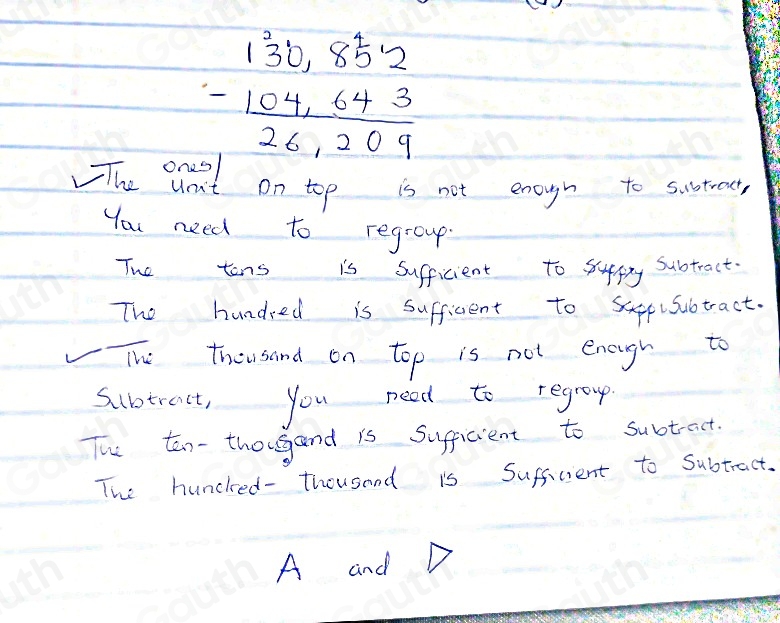 130,852
2 1 4 1
- 104,643
26,209
ones/
The Unit on top is not enough to subtract,
You need to regroup.
The tens is sufficient to subtract.
The hundred is sufficient to subtract.
The thousand on top is not enough to
Subtract, you need to regroup.
The ten-thousand is Sufficient to Subtract.
The hundred-thousand is Sufficient to Subtract.
A and D